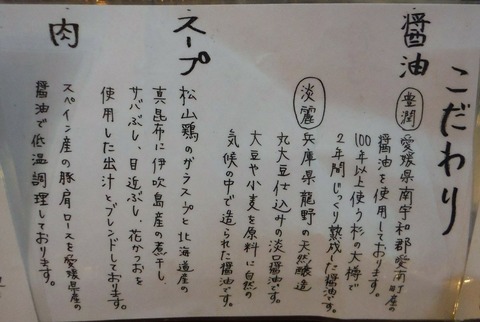 こだわり
醤油
豊潤 愛媛県南宇和郡愛南町産の
醤油を使用しております。
100年以上使う杉の大樽で
2年間じっくり熟成した醤油です。
淡麗 兵庫県龍野の天然醸造
丸大豆仕込みの淡口醤油です。
大豆や小麦を原料に自然の
気候の中で造られた醤油です。
スープ
松山鶏のガラスープと北海道産の
真昆布に伊吹島産の煮干し
サバぶし、目近ぶし、花かつおを
使用した出汁とブレンドしております。
肉
スペイン産の豚肩ロースを愛媛県産の
醤油で低温調理しております。